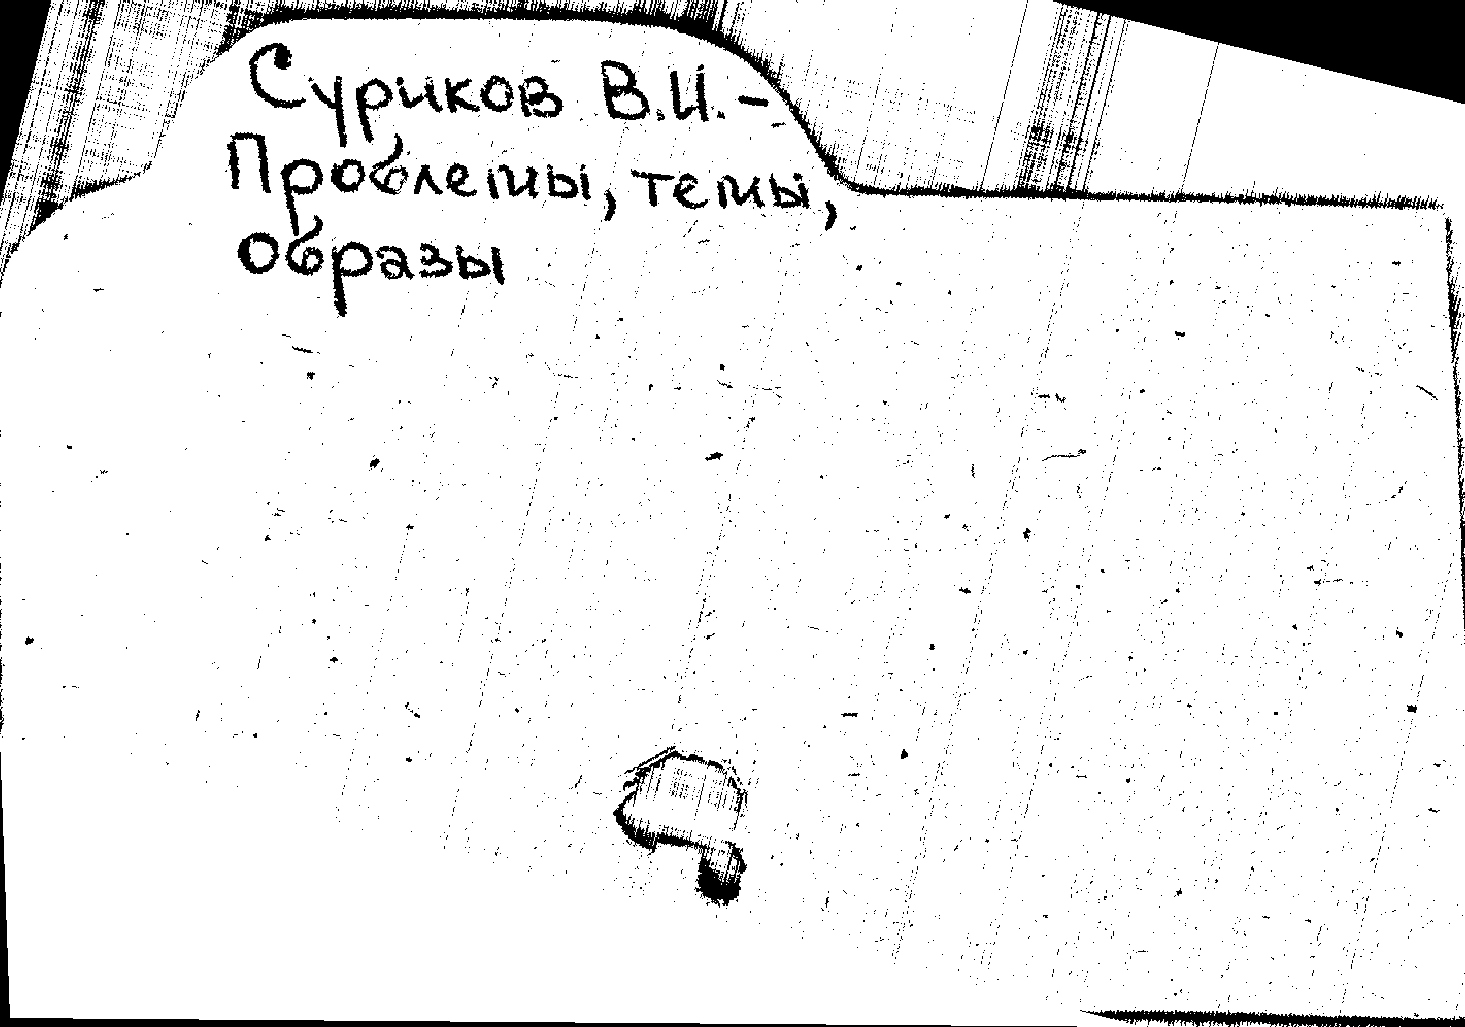 Суриков В.И. -
Проблемы, темы,
образы